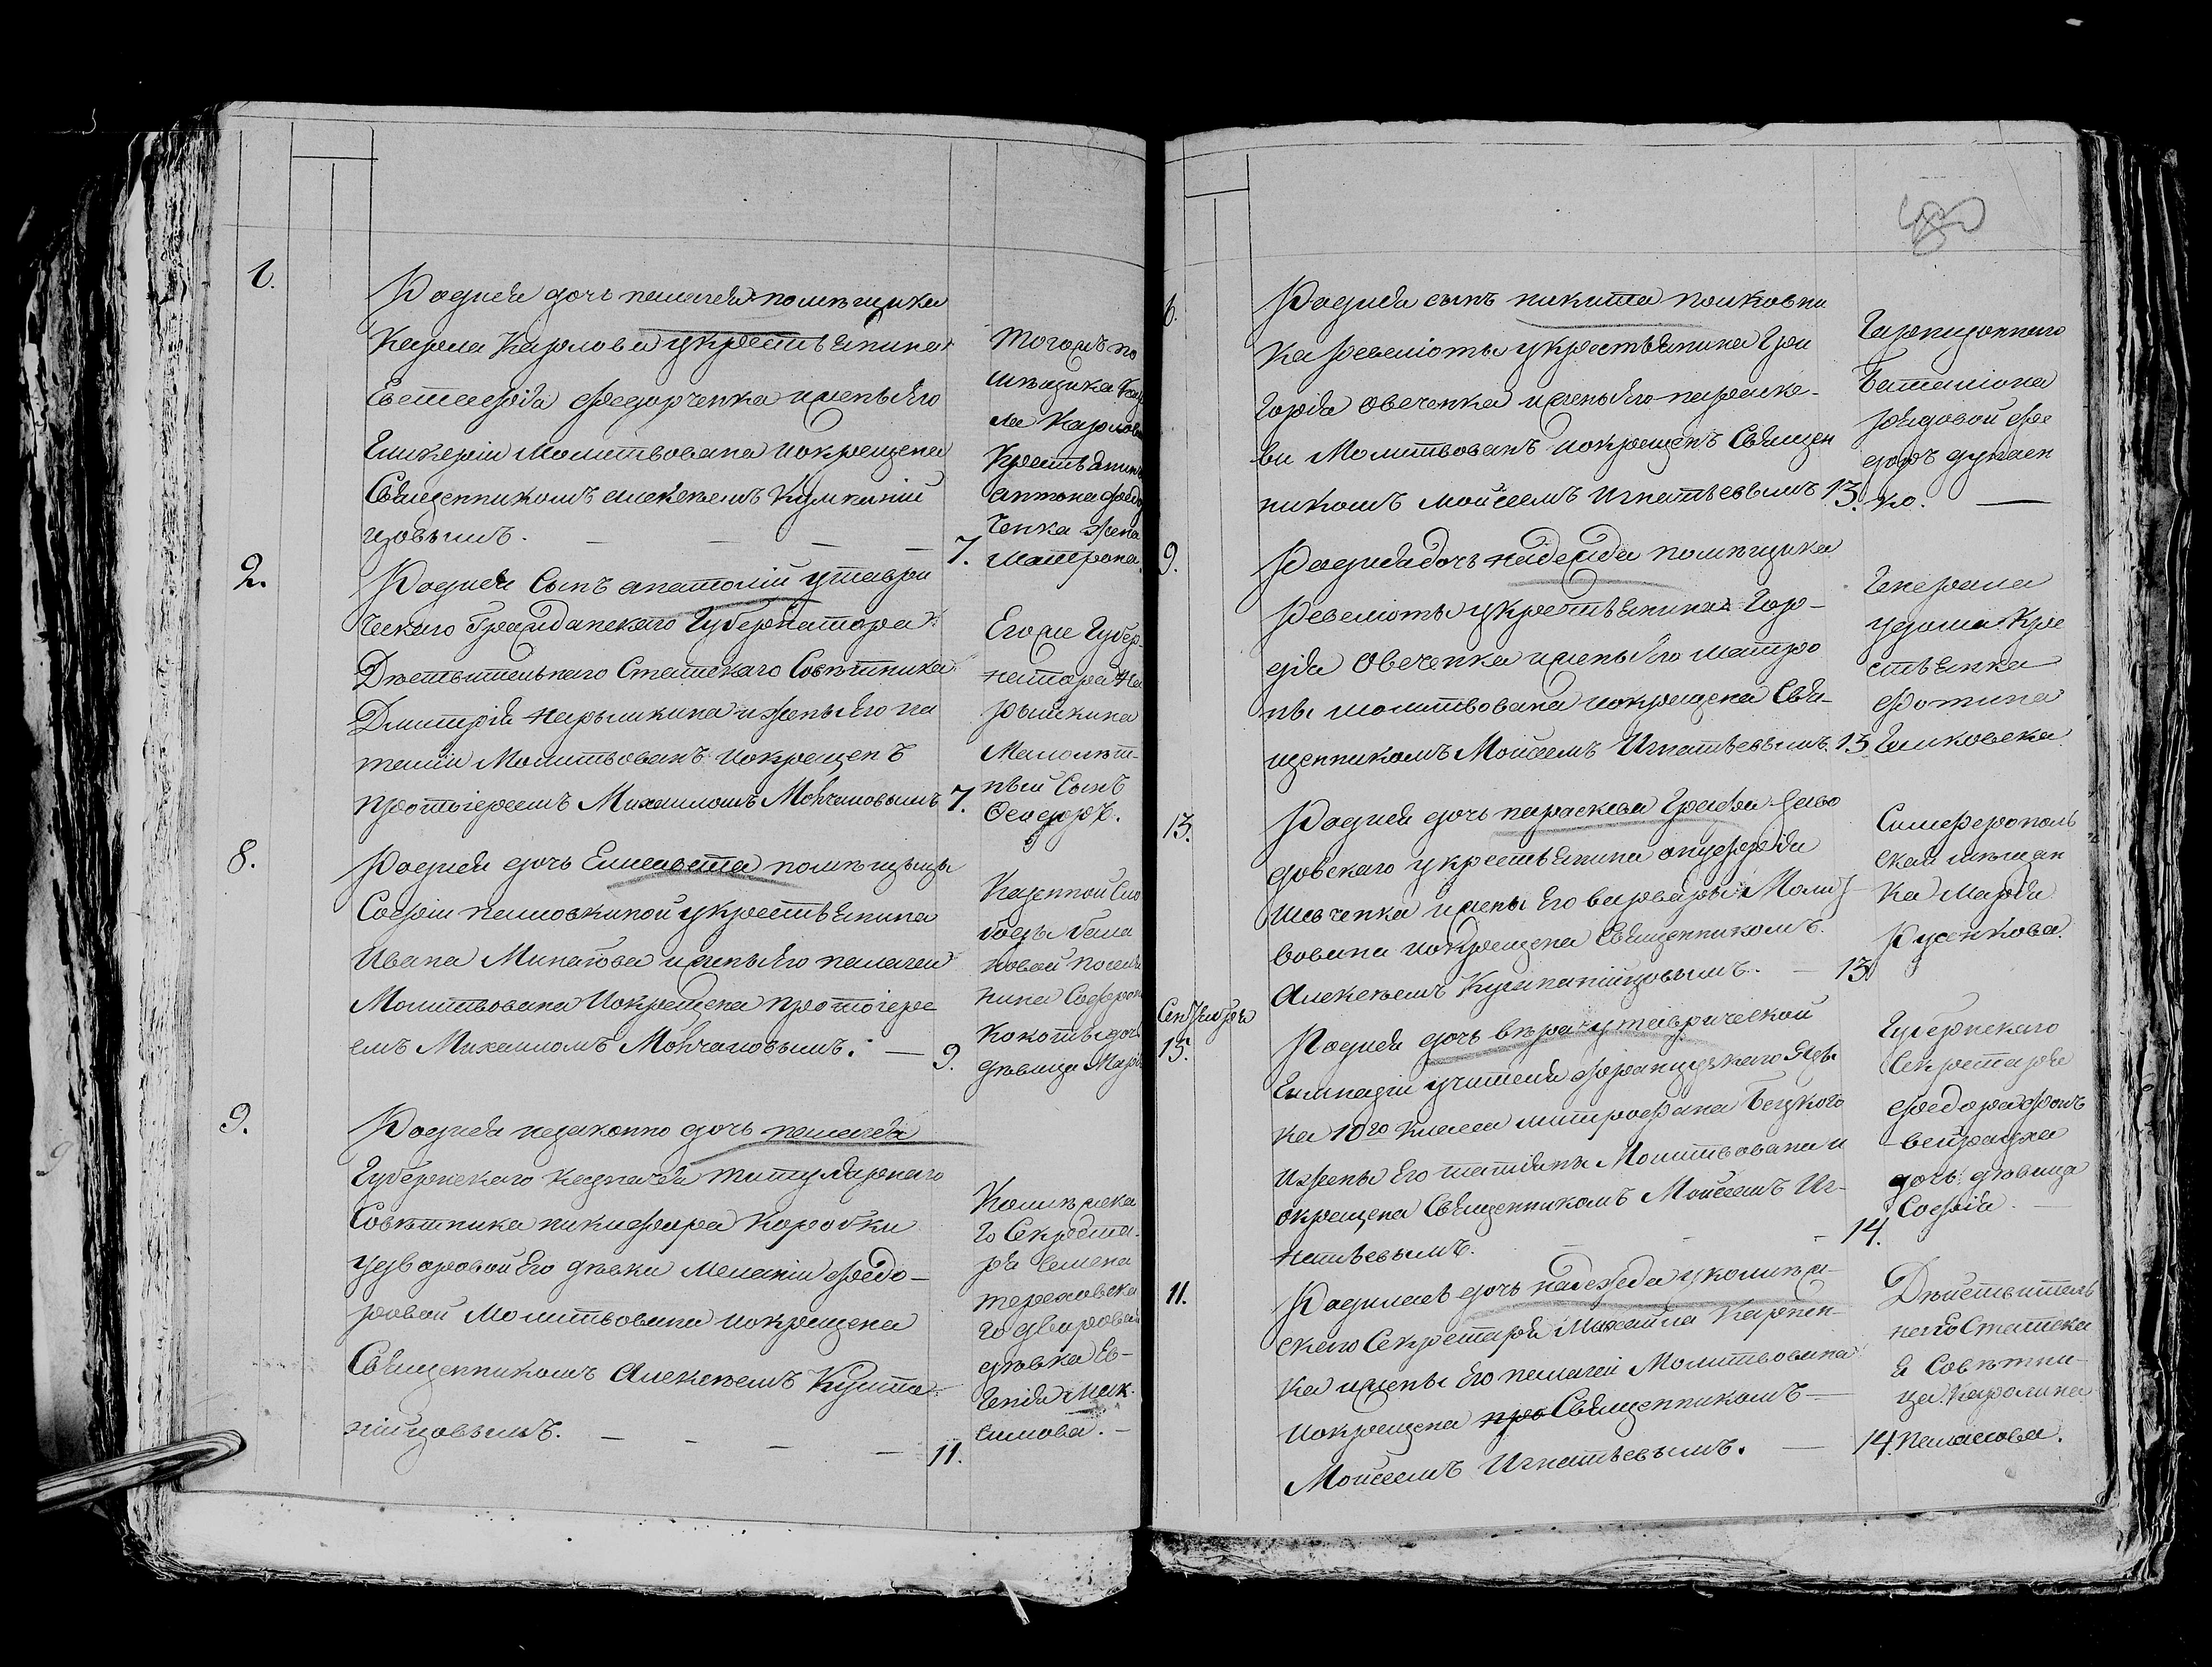 1.
Родися дочь пелагея помѣщика
Карла Карлова у крестьянина
Евстафія Федорченка и жены его
Гликеріи Молитвована и окрещена
Священникомъ Алексѣемъ
цовымъ. — — — — 7.
Тогожъ по
мѣщика Кар
ла Карлова
Крестьянин
антона Федор
ченка жена
Матрона.
2.
Родися Сынъ анатолій у таври
ческаго Гражданскаго Губернатора
Дѣйствительнаго Статскаго Совѣтника
Дмитрія Нарышкина и жены его на
таліи Молитвованъ и окрещенъ
протоіереемъ Михаиломъ Мончановымъ 7.
Егоже Губер-
натора На
рышкина
Малолѣт-
ный Сынъ
Ѳеодоръ.
8.
Родися дочь Елисавета помѣщицы
Софіи у крестьянина
Ивана Минакова и жены его пелагеи
Молитвована и окрещена протоіере
емъ Михаиломъ Мончановымъ. — 9.
Казенной Сло
боды
новой посели
нина Софрон
дочь
дѣвица Марѳ
9.
Родися незаконно дочь пелагея
Губернскаго Казначея титулярнаго
Совѣтника никифора Коробки
у дворовой его дѣвки Меланіи Федо-
ровой Молитвована и окрещена
Священникомъ Алексѣемъ
цовымъ. — — — — 11.
Колѣжска
го Секрета-
ря Семена
тереховска
го дворовая
дѣвка Ев-
генія Мак-
симова. —
480
6.
Родися сынъ никита полковни
ка ревеліоты у крестьянина Гри
горія Овеченка и жены его параске-
ви Молитвованъ и окрещенъ Священ
никомъ Мойсеемъ Игнатьевымъ 13.
Гарнизоннаго
Баталіона
рядовой Фе
доръ
ко. —
9.
Родися дочь надежда помѣщика
ревеліоты у крестьянина Гри-
горія Овеченка и жены его матро
ны молитвована и окрещена Свя-
щенникомъ Мойсеемъ Игнатьевымъ. 13.
Генерала
Кре
стьянка
Фотина
13.
Родися дочь параскева Графа
довскаго у крестьянина онуфрія
Шевченка и жены его варвары Молит
вована и окрещена Священникомъ
Алексѣемъ — 13
Симферополь
ская мѣщан
ка Марія
Русенкова.
Сентября
15.
Родися дочь вѣра у таврической
Гимназіи учителя французскаго язы
ка 10го класса митрофана Бецкого
и жены его татіаны Молитвована и
окрещена Священникомъ Мойсеемъ Иг-
натьевымъ. — — — 14.
Губернскаго
Секретаря
Федора фонъ
дочь дѣвица
Софія. —
11.
Родилась дочь надежда у колѣж-
скаго Секретаря Михаила Карпен-
ка и жены его пелагеи Молитвована
и окрещена про Священникомъ —
Мойсеемъ Игнатьевымъ. — 14.
Дѣйствитель
наго Статска
я Совѣтни-
ца Каролина